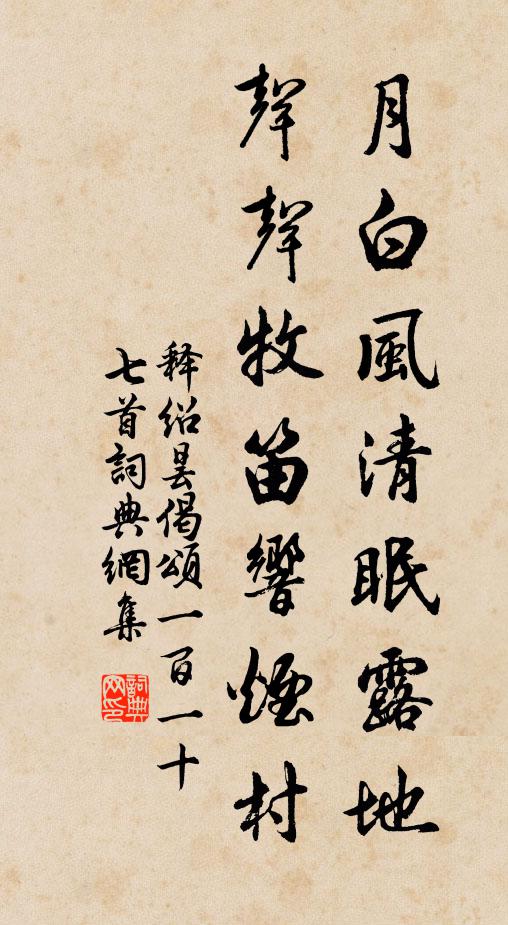 月白風清眠露地
聲聲牧笛響煙村
释绍昙偈頌一百一十
七首詞典網集
詞典网印